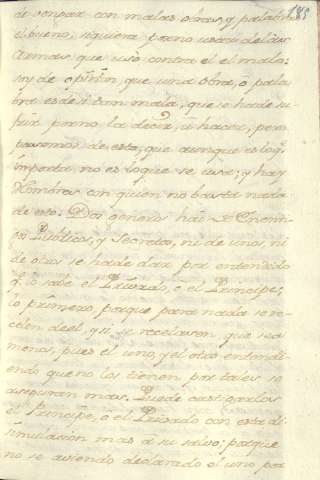 189
de vengar con malas obras, y palabras
el bueno, siquiera por no usar de las
Armas que usò contra el el malo:
soy de opinion, que una obra, ò pala
bra es de si tan mala, que se ha de su
frir por no la decir, ù hacer, pero
pasemos de esto, que aunque es loq.e
importa, no es lo que se usa; y hay
Hombres con quien no basta nada
de esto. Dos generos hai de Enemi
gos Publicos, y Secretos, ni de unos, ni
de otros se ha de dar por entendido
q.e lo sabe el Privado, ò el Principe;
lo primero, porque para nada se re
celen de el, y si se recelaren que sea
menos, pues el uno, y el otro entendi
endo que no los tienen por tales se
aseguran mas, Puede castigarlos
el Principe, ò el Privado con esta di
simulacion mas à su salvo; porque
no se aviendo declarado el uno por